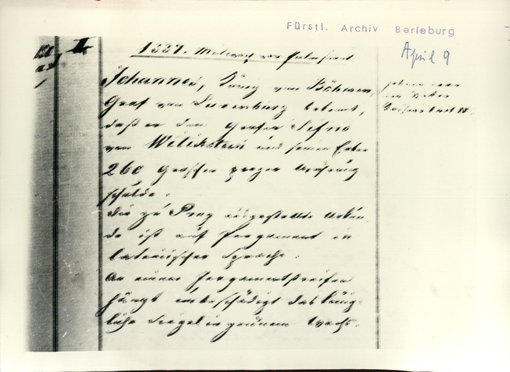 Fürstl. Archiv Berleburg
April 9
1337. Mittwoch vor Palmsonnt
Johannes, König von Böhmen,
Graf von Luxemburg bekennt,
daß er dem Grafen
von und seinen Erben
260 Groschen prager Währung
schulde.
Die zu Prag ausgestellte Urkun
de ist auf Pergament in
lateinischer Sprache.
An einem Pergamentstreifen
hängt unbeschädigt das König-
liche Siegel in grünem Wachs.